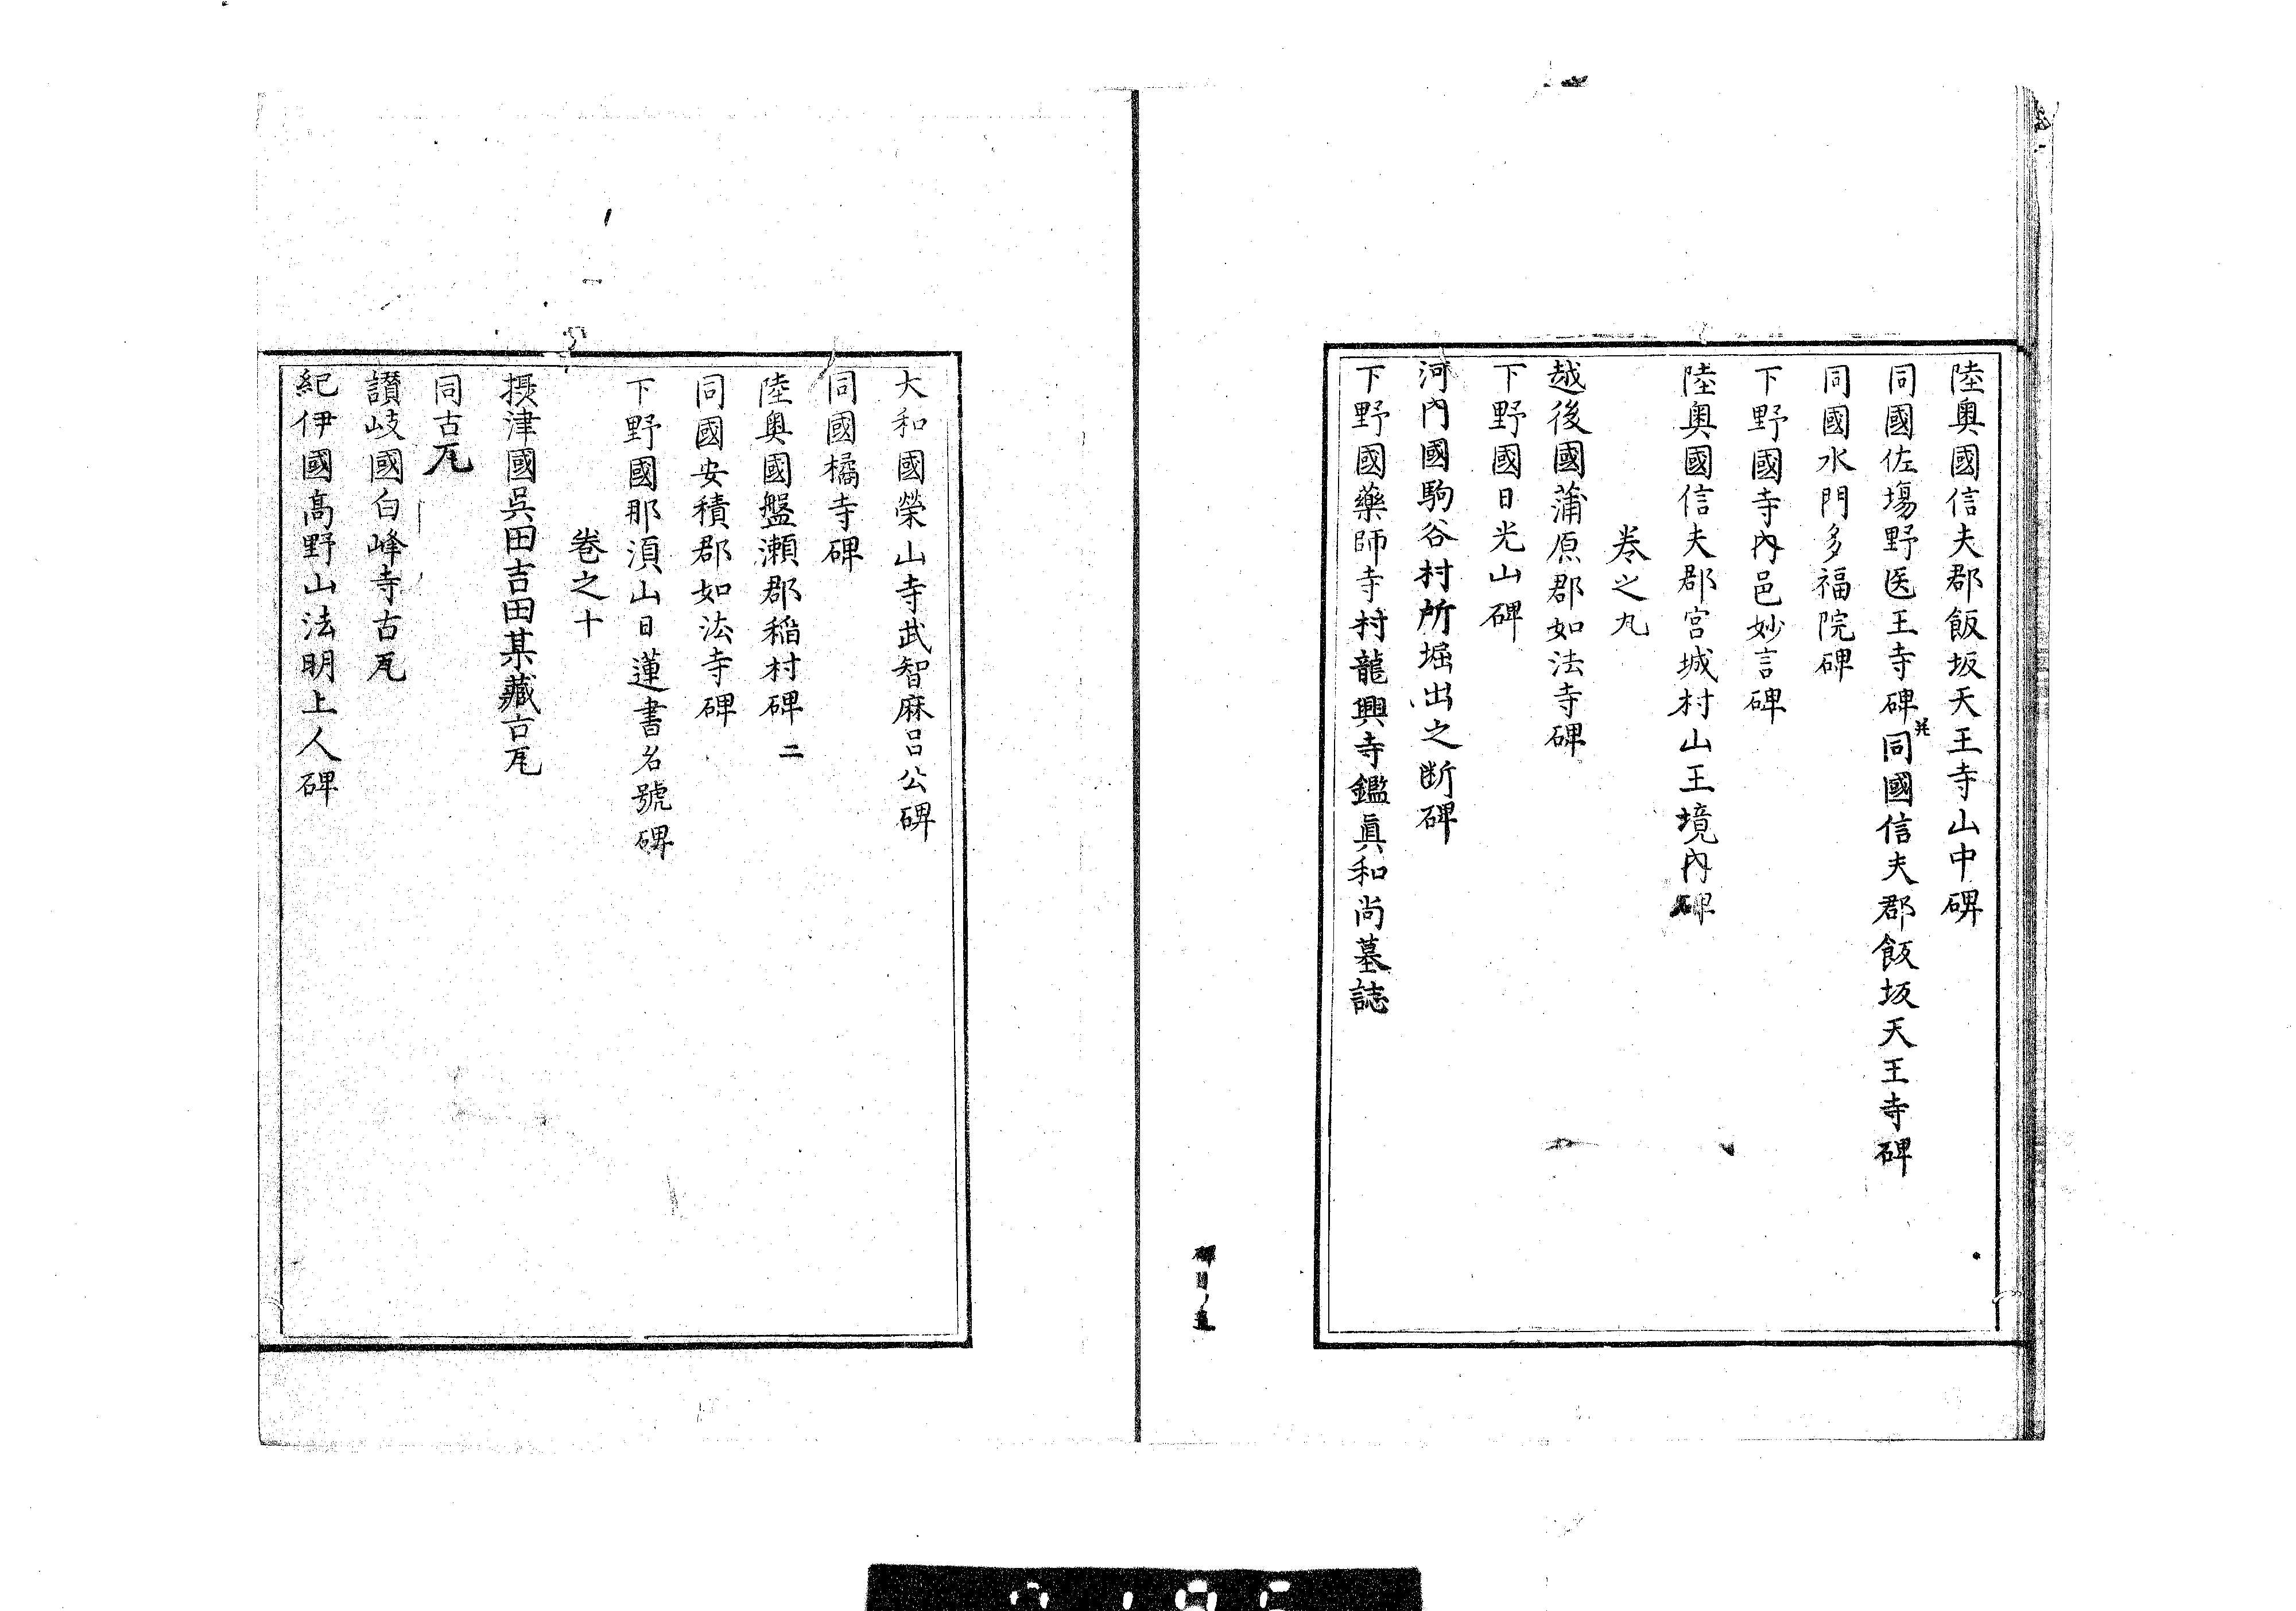 陸奥國信夫郡飯坂天王寺山中碑
同國佐塲野医王寺碑 并同國信夫郡飯坂天王寺碑
同國水門多福院碑
下野國寺内邑妙言碑
陸奥國信夫郡宮城村山王境内碑
巻之九
越後國蒲原郡如法寺碑
下野國日光山碑
河内國駒谷村所堀出之断碑
下野國藥師寺村龍興寺鑑眞和尚墓誌
碑目
大和國榮山寺武智麻呂公碑
同國橘寺碑
陸奥國盤瀬郡稲村碑 二
同國安積郡如法寺碑
下野國那須山日蓮書名號碑
巻之十
摂津國呉田吉田某藏古瓦
同古瓦
讃岐國白峰寺古瓦
紀伊國高野山法明上人碑